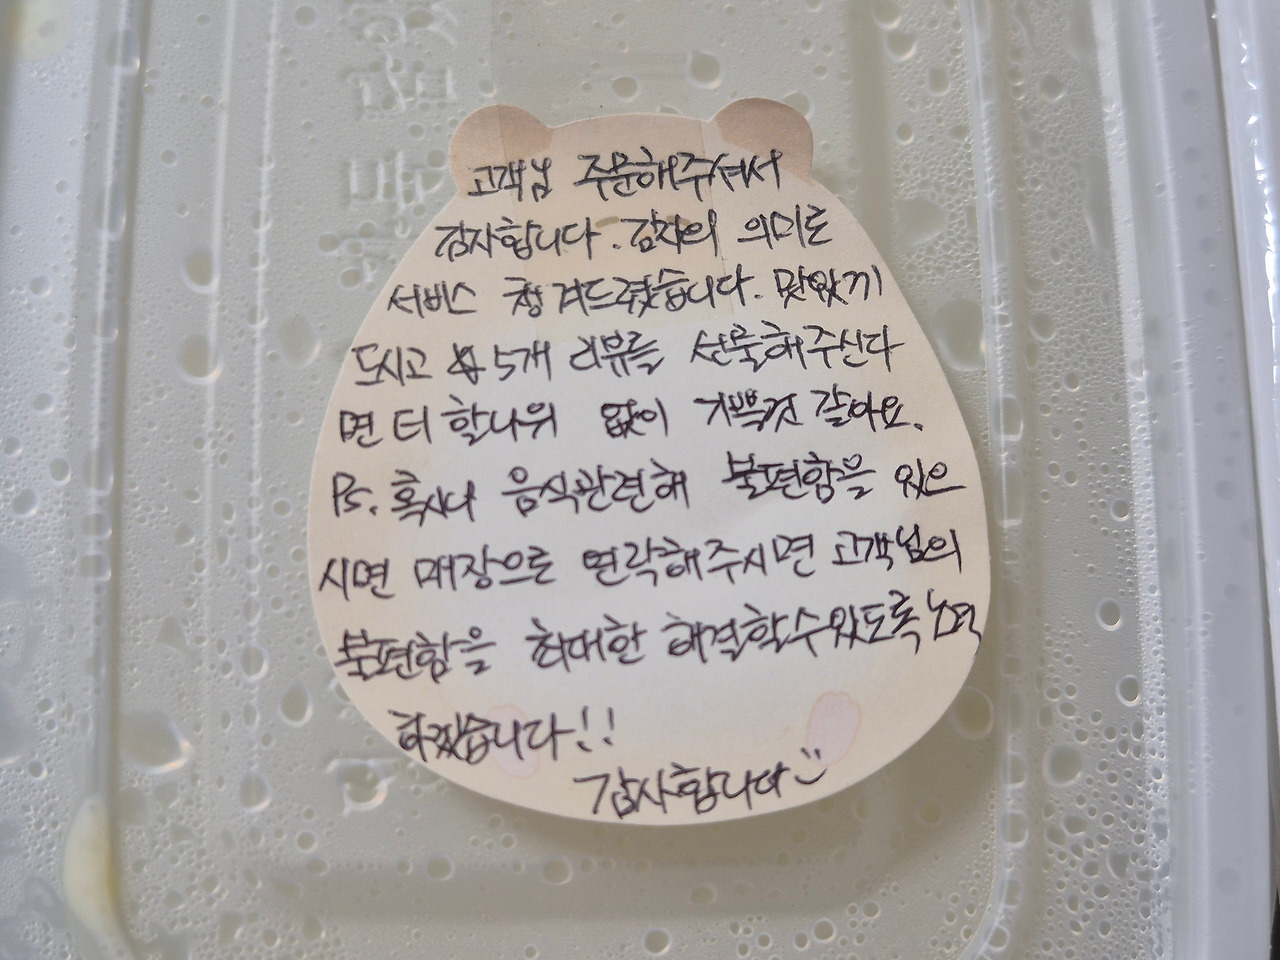 고객님 주문해주셔서
감사합니다. 감사의 의미로
서비스 챙겨드렸습니다. 맛있게
드시고 5개 리뷰를 선물해주신다
면 더 할나위 없이 기쁠것 같아요.
Ps. 혹시나 음식관련해 불편함을 있으
시면 매장으로 연락해주시면 고객님의
불편함을 최대한 해결할수있도록 노력
하겠습니다!!
감사합니다